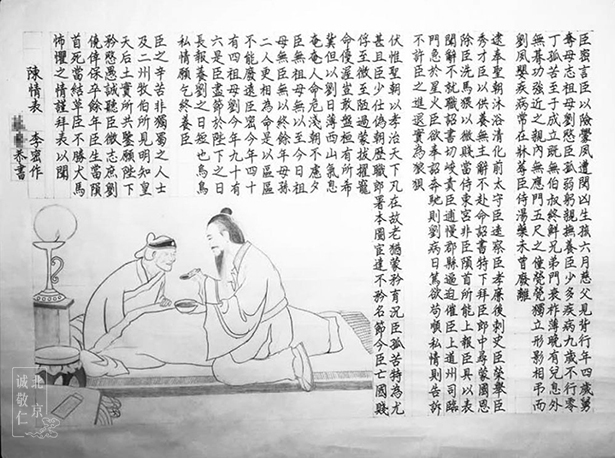 臣密言臣以險釁夙遭閔凶生孩六月慈父見背行年四歲舅
奪母志祖母劉愍臣孤弱躬親撫養臣少多疾病九歲不行零
丁孤苦至于成立既無伯叔終鮮兄弟門衰祚薄晚有兒息外
無朞功強近之親內無應門五尺之僮煢煢獨立形影相弔而
劉夙嬰疾病常在牀蓐臣侍湯藥未曾廢離
逮奉聖朝沐浴清化前太守臣逵察臣孝廉後刺史臣榮舉臣
秀才臣以供養無主辭不赴命詔書特下拜臣郎中尋蒙國恩
除臣洗馬猥以微賤當侍東宮非臣隕首所能上報臣具以表
聞辭不就職詔書切峻責臣逋慢郡縣逼迫催臣上道州司臨
門急於星火臣欲奉詔奔馳則劉病日篤欲苟順私情則告訴
不許臣之進退實為狼狽
伏惟聖朝以孝治天下凡在故老猶蒙矜育況臣孤苦特為尤
甚且臣少仕偽朝歷職郎署本圖宦達不矜名節今臣亡國賤
俘至微至陋過蒙拔擢寵
命優渥豈敢盤桓有所希
冀但以劉日薄西山氣息
奄奄人命危淺朝不慮夕
臣無祖母無以至今日祖
母無臣無以終餘年母孫
二人更相為命是以區區
不能廢遠臣密今年四十
有四祖母劉今年九十有
六是臣盡節於陛下之日
長報養劉之日短也烏鳥
私情願乞終養臣
臣之辛苦非獨蜀之人士
及二州牧伯所見明知皇
天后土實所共鑒願陛下
矜愍愚誠聽臣微志庶劉
僥倖保卒餘年臣生當隕
首死當結草臣不勝犬馬
怖懼之情謹拜表以聞
陳情表 李密作
恭書
北京
誠敬仁